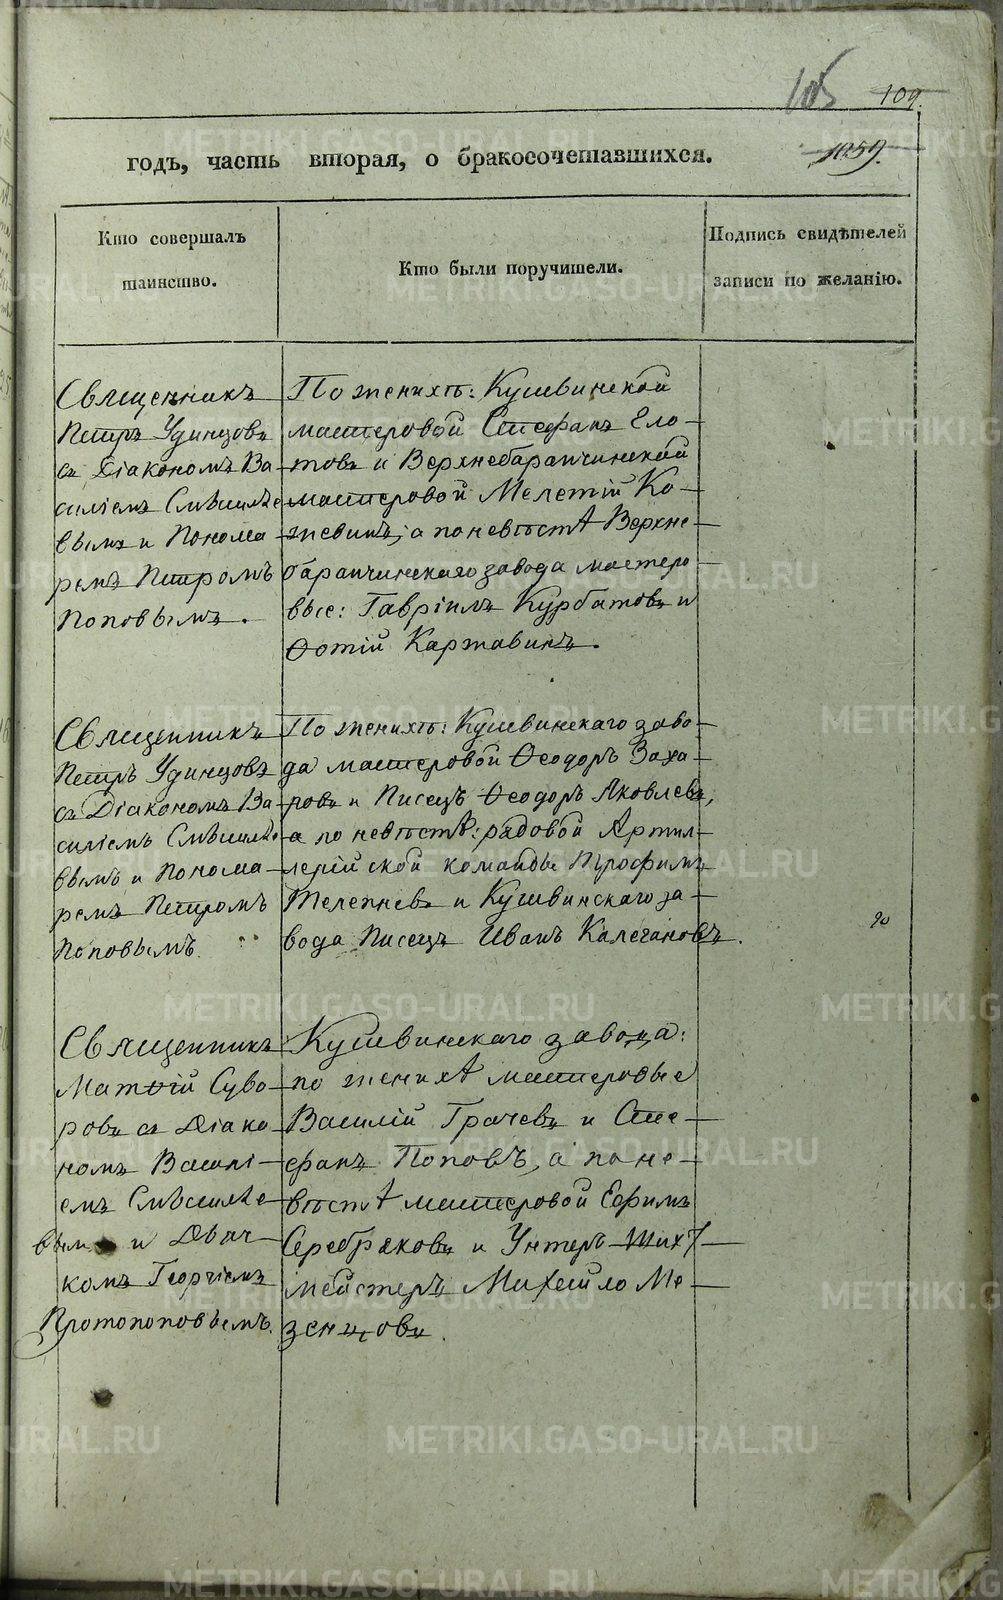 105 109.
годъ, часть вторая, о бракосочетавшихся. 1059.
Кто совершалъ
таинство.
Кто были поручители.
Подпись свидѣтелей
записи по желанію.
Священникъ
Петръ Удинцовъ
съ Діакономъ Ва-
силіемъ Смѣшняе
вымъ и Понома-
ремъ Петромъ
Поповымъ.
По женихѣ: Кушвинской
мастеровой Стефанъ Ело-
товъ и Верхнебаранчинской
мастеровой Мелетій Ко-
жевинъ; а по невѣстѣ Верхне-
баранчинскаго завода мастеро-
вые: Гавріилъ Курбатовъ и
Ѳотій Каржавинъ.
Священникъ
Петръ Удинцовъ
съ Діакономъ Ва-
силіемъ
вымъ и Понома-
ремъ Петромъ
Поповымъ.
По женихѣ: Кушвинскаго заво-
да мастеровой Ѳеодоръ Заха-
ровъ и Писецъ Ѳеодоръ Яковлевъ,
а по невѣстѣ: рядовой Артил-
лерійской команды Трофимъ
Телепневъ и Кушвинскаго за-
вода Писецъ Иванъ Калегановъ.
Священникъ
Матѳій Суво-
ровъ съ Діако-
номъ Василі-
емъ
вымъ и Дьяч-
комъ Георгіемъ
Протопоповымъ.
Кушвинскаго завода:
по женихѣ мастеровые
Василій Грачевъ и Сте-
фанъ Поповъ, а по не-
вѣстѣ мастеровой Ефимъ
Серебряковъ и Унтеръ-Шихт-
мейстеръ Михайло Ме-
зенцовъ.
METRIKI.GASO-URAL.RU